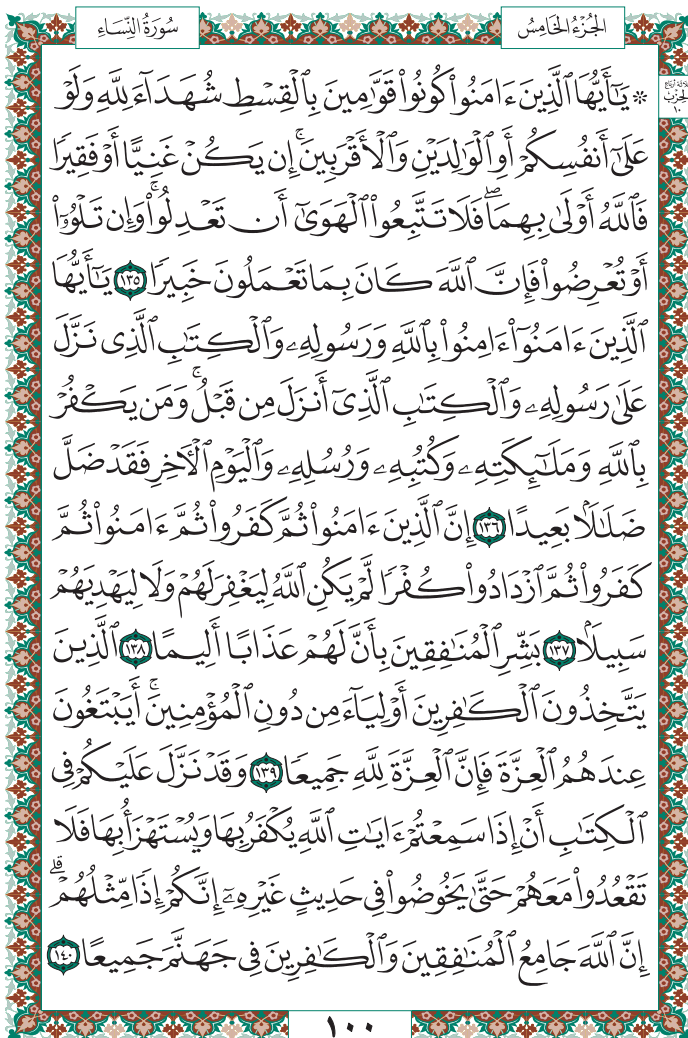 سُورَةُ النِّسَاءِ
الجُزْءُ الخَامِسُ
ثلاثة أرباع
الحِزْب
١٠
۞ يَٰٓأَيُّهَا ٱلَّذِينَ ءَامَنُوا۟ كُونُوا۟ قَوَّٰمِينَ بِٱلْقِسْطِ شُهَدَآءَ لِلَّهِ وَلَوْ
عَلَىٰٓ أَنفُسِكُمْ أَوِ ٱلْوَٰلِدَيْنِ وَٱلْأَقْرَبِينَ ۚ إِن يَكُنْ غَنِيًّا أَوْ فَقِيرًا
فَٱللَّهُ أَوْلَىٰ بِهِمَا ۖ فَلَا تَتَّبِعُوا۟ ٱلْهَوَىٰٓ أَن تَعْدِلُوا۟ ۚ وَإِن تَلْوُۥٓا۟
أَوْ تُعْرِضُوا۟ فَإِنَّ ٱللَّهَ كَانَ بِمَا تَعْمَلُونَ خَبِيرًا ١٣٥ يَٰٓأَيُّهَا
ٱلَّذِينَ ءَامَنُوٓا۟ ءَامِنُوا۟ بِٱللَّهِ وَرَسُولِهِۦ وَٱلْكِتَٰبِ ٱلَّذِى نَزَّلَ
عَلَىٰ رَسُولِهِۦ وَٱلْكِتَٰبِ ٱلَّذِىٓ أَنزَلَ مِن قَبْلُ ۚ وَمَن يَكْفُرْ
بِٱللَّهِ وَمَلَٰٓئِكَتِهِۦ وَكُتُبِهِۦ وَرُسُلِهِۦ وَٱلْيَوْمِ ٱلْءَاخِرِ فَقَدْ ضَلَّ
ضَلَٰلًۢا بَعِيدًا ١٣٦ إِنَّ ٱلَّذِينَ ءَامَنُوا۟ ثُمَّ كَفَرُوا۟ ثُمَّ ءَامَنُوا۟ ثُمَّ
كَفَرُوا۟ ثُمَّ ٱزْدَادُوا۟ كُفْرًا لَّمْ يَكُنِ ٱللَّهُ لِيَغْفِرَ لَهُمْ وَلَا لِيَهْدِيَهُمْ
سَبِيلًۢا ١٣٧ بَشِّرِ ٱلْمُنَٰفِقِينَ بِأَنَّ لَهُمْ عَذَابًا أَلِيمًا ١٣٨ ٱلَّذِينَ
يَتَّخِذُونَ ٱلْكَٰفِرِينَ أَوْلِيَآءَ مِن دُونِ ٱلْمُؤْمِنِينَ ۚ أَيَبْتَغُونَ
عِندَهُمُ ٱلْعِزَّةَ فَإِنَّ ٱلْعِزَّةَ لِلَّهِ جَمِيعًا ١٣٩ وَقَدْ نَزَّلَ عَلَيْكُمْ فِى
ٱلْكِتَٰبِ أَنْ إِذَا سَمِعْتُمْ ءَايَٰتِ ٱللَّهِ يُكْفَرُ بِهَا وَيُسْتَهْزَأُ بِهَا فَلَا
تَقْعُدُوا۟ مَعَهُمْ حَتَّىٰ يَخُوضُوا۟ فِى حَدِيثٍ غَيْرِهِۦٓ ۚ إِنَّكُمْ إِذًا مِّثْلُهُمْ ۗ
إِنَّ ٱللَّهَ جَامِعُ ٱلْمُنَٰفِقِينَ وَٱلْكَٰفِرِينَ فِى جَهَنَّمَ جَمِيعًا ١٤٠
١٠٠